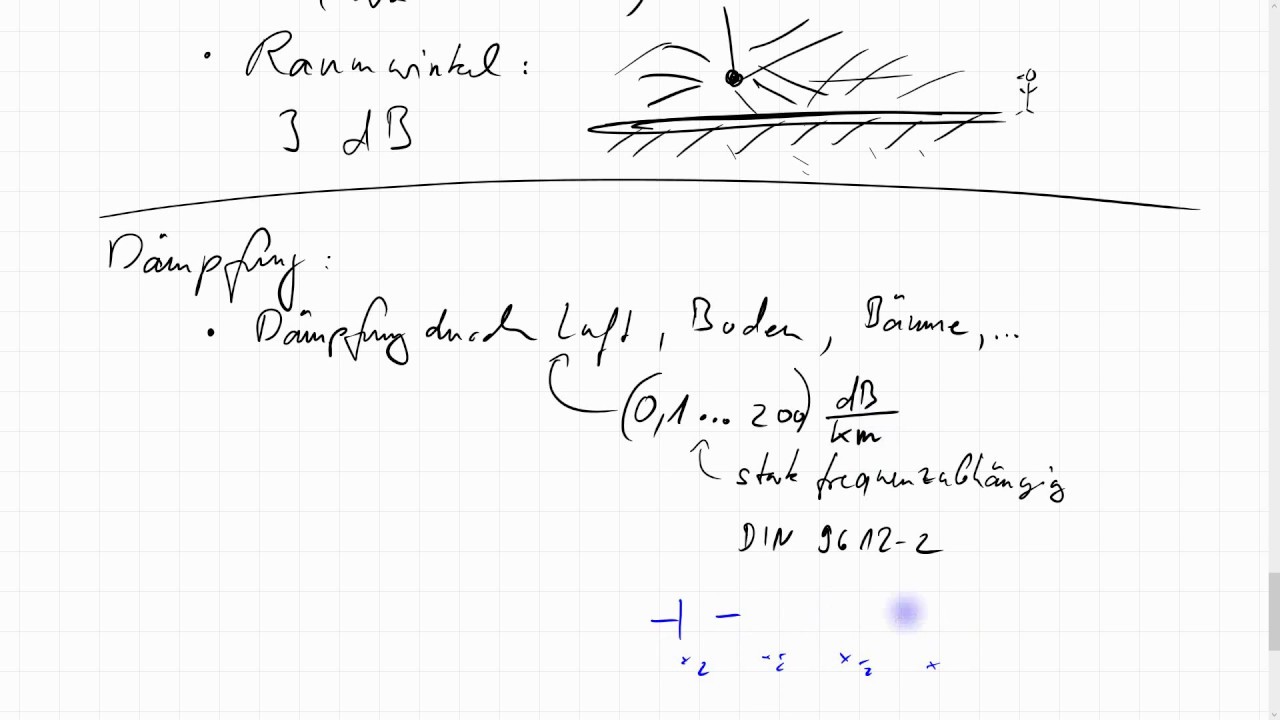 • Raumwinkel:
3 dB
Dämpfung:
• Dämpfung durch Luft, Boden, Bäume, ...
(0,1 ... 200) dB/km
stark frequenzabhängig
DIN 9612-2
x2 x2 x2 x